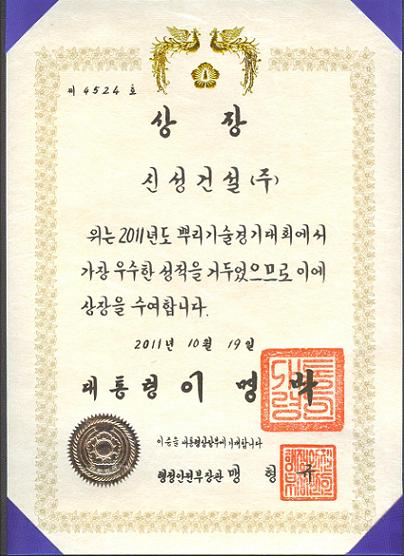 제 4524 호
상 장
신성건설(주)
위는 2011년도 뿌리기술경기대회에서
가장 우수한 성적을 거두었으므로 이에
상장을 수여합니다.
2011년 10월 19일
대통령 이명박
이 증을 대통령상장부에 기재합니다
행정안전부장관 맹형규